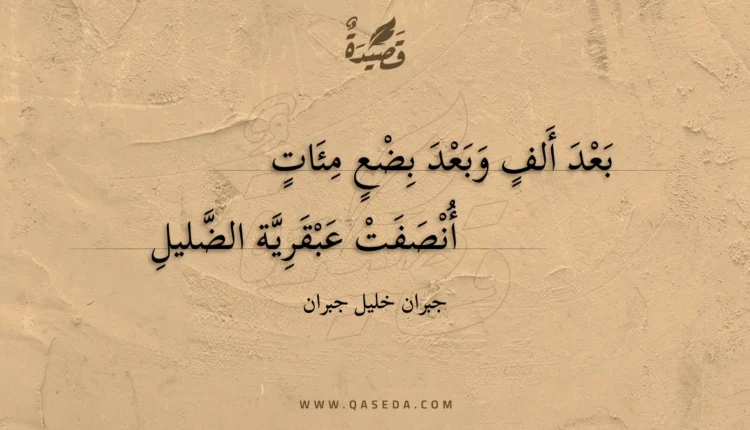 قَصِيدَةٌ
بَعْدَ أَلفٍ وَبَعْدَ بِضْعٍ مِئَاتٍ
أُنْصَفَتْ عَبْقَرِيَّة الضَّليلِ
جبران خليل جبران
WWW.QASEDA.COM